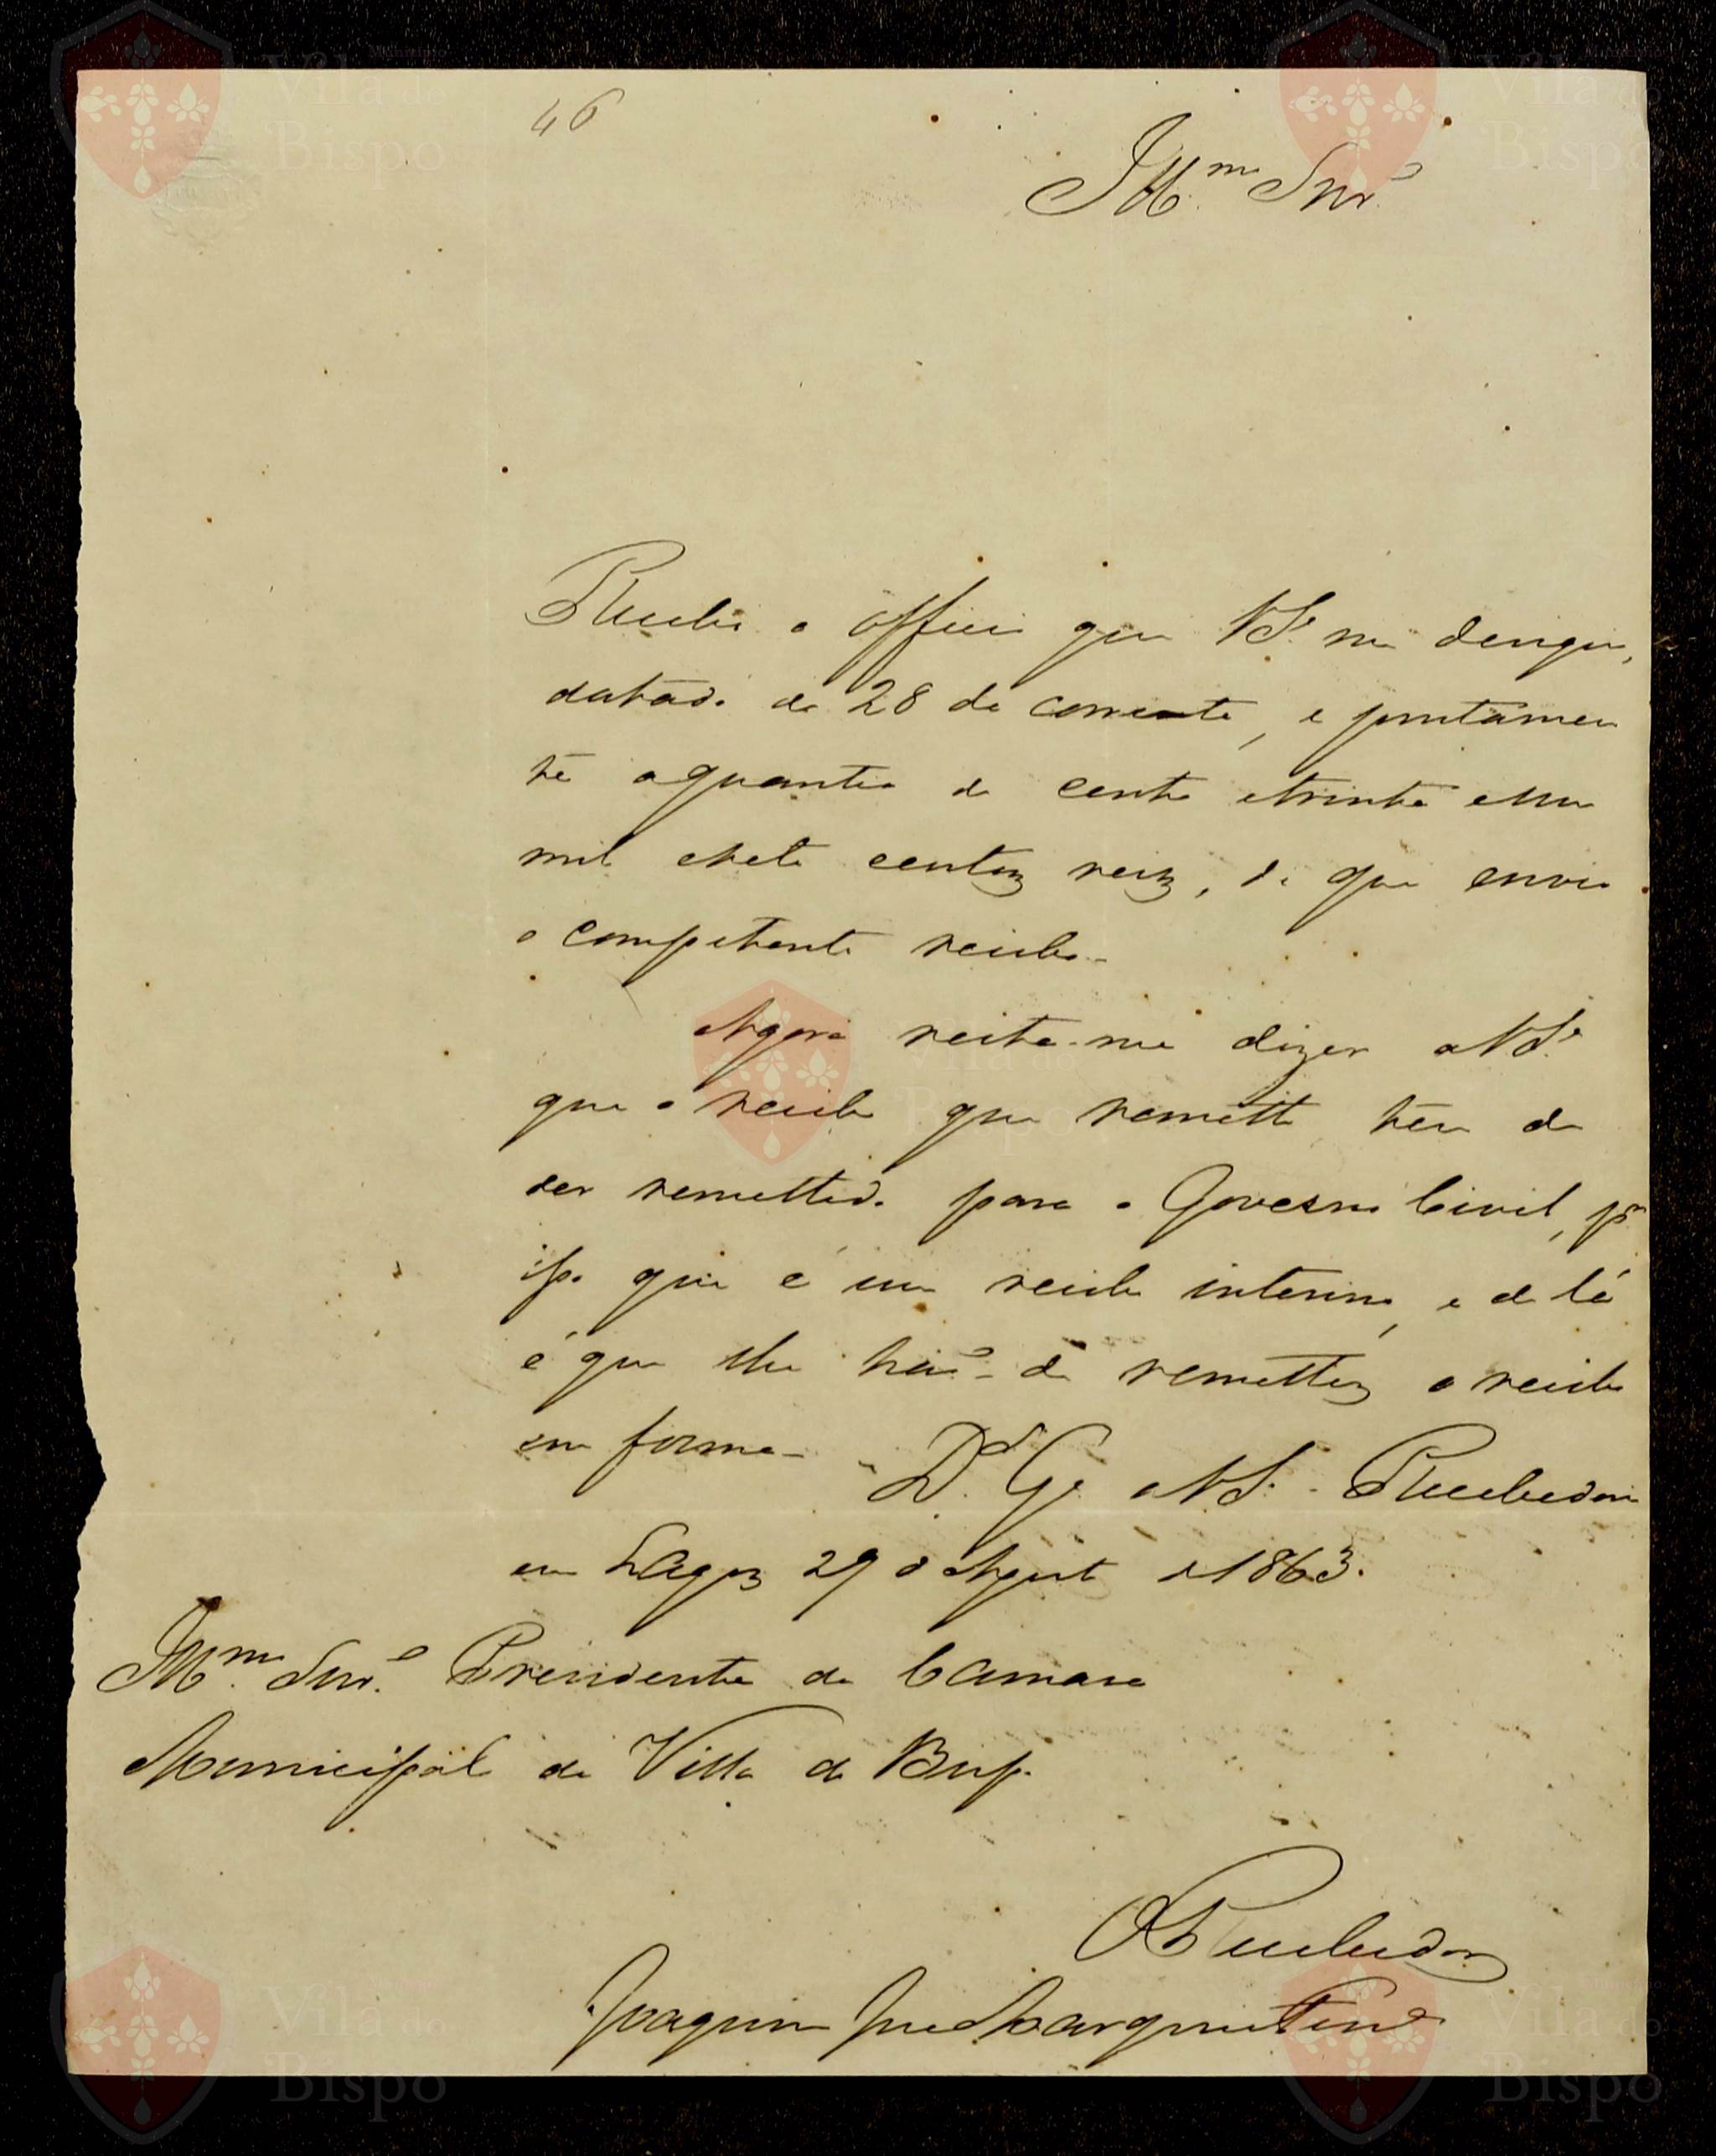 46
Ill.mo Snr.
Recebi o officio que V.S.ª me derigiu,
datado de 28 do corrente, e juntamen
te a quantia de cento e trinta e um
mil e sete centos reis, de que envio
o competente recibo.
Agora resta-me dizer a V.S.ª
que o recibo que remetto tem de
ser remettido para o Governo Civil, p.r
isso que é um recibo interino, e de lá
é que lhe hão-de remetter o recibo
em forma. D.s G.e a V.S.ª Recebedoria
em Lagos 29 d'Agosto de 1863.
Ill.mo Snr. Presidente da Camara
Municipal de Villa do Bispo
O Recebedor
Joaquim José
Vila do Bispo